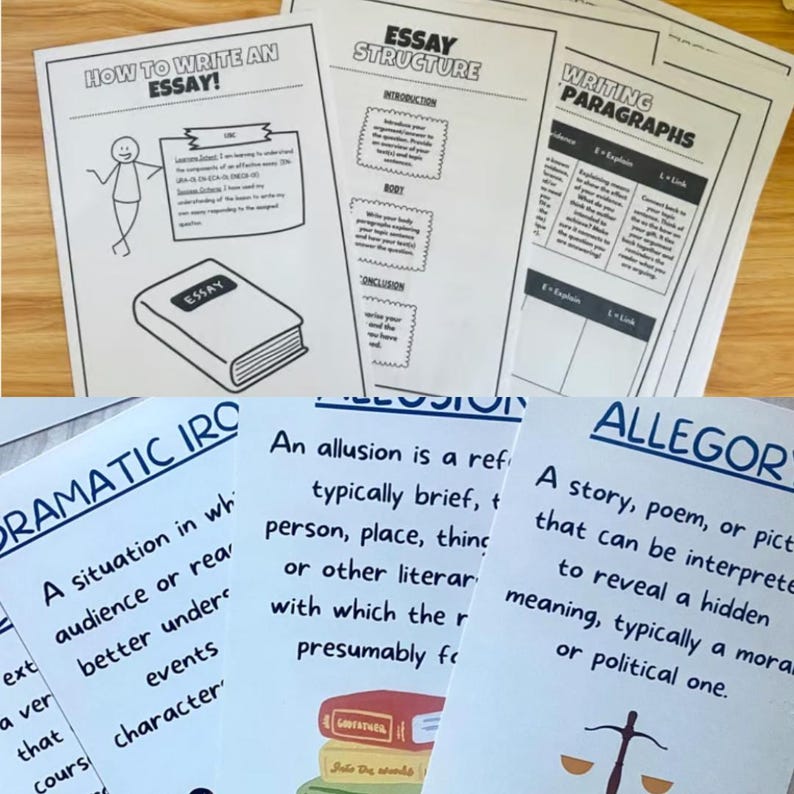 HOW TO WRITE AN
ESSAY!
LISC
Learning Intent: I am learning to understand
the components of an effective essay. (EN-
URA-01, EN-ECA-01, ENECB-01)
Success Criteria: I have used my
understanding of the lesson to write my
own essay responding to the assigned
question.
ESSAY
ESSAY
STRUCTURE
INTRODUCTION
Introduce your
argument/answer to
the question. Provide
an overview of your
text(s) and topic
sentences.
BODY
Write your body
paragraphs exploring
your topic sentence
and how your text(s)
answer the question.
ONCLUSION
arise your
and the
you have
ed.
WRITING
PARAGRAPHS
idence
E = Explain
L = Link
Explaining means
to show the effect
of your evidence.
What do you
think the author
intended to
achieve? Make
sure it connects to
the question you
are answering!
Connect back to
your topic
sentence. Think of
the to the bow on
your gift. It ties
your argument
back together and
reminders the
reader what you
are arguing.
E = Explain
L = Link
DRAMATIC IRO
A situation in whi
audience or read
better unders
events
character
ext
a ver
that
cours
ALLUSION
An allusion is a ref
typically brief, t
person, place, thing
or other literar
with which the r
presumably fa
GODFATHER
Into the woods
ALLEGORY
A story, poem, or pict
that can be interprete
to reveal a hidden
meaning, typically a moral
or political one.